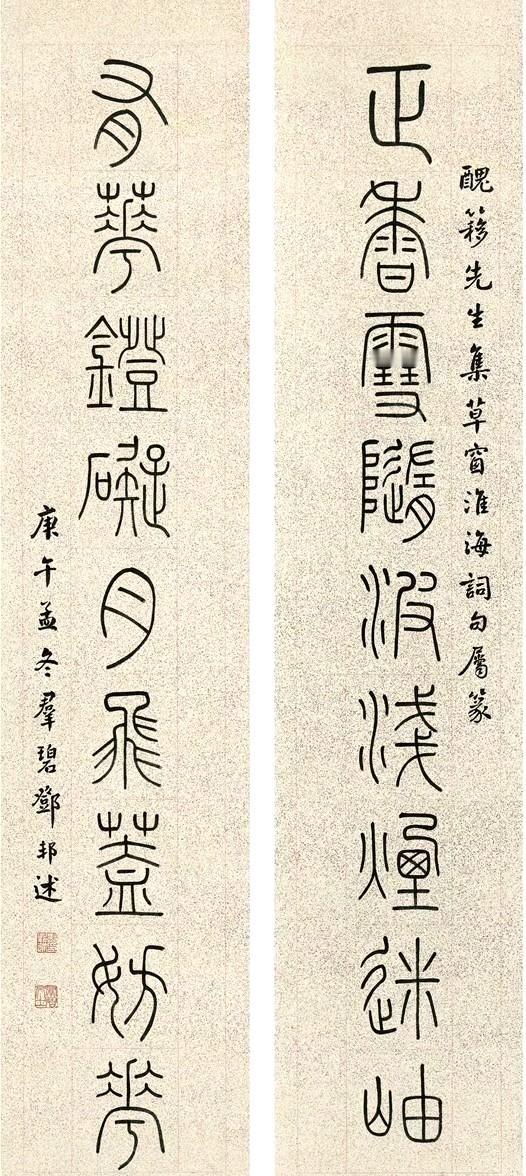 醜簃先生集草窗淮海詞句屬篆
正香雪隨波淺煙迷岫
有華鐙礙月飛蓋妨花
庚午孟冬羣碧鄧邦述